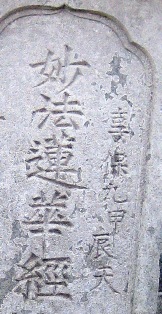 享保九甲辰天
妙法蓮華經